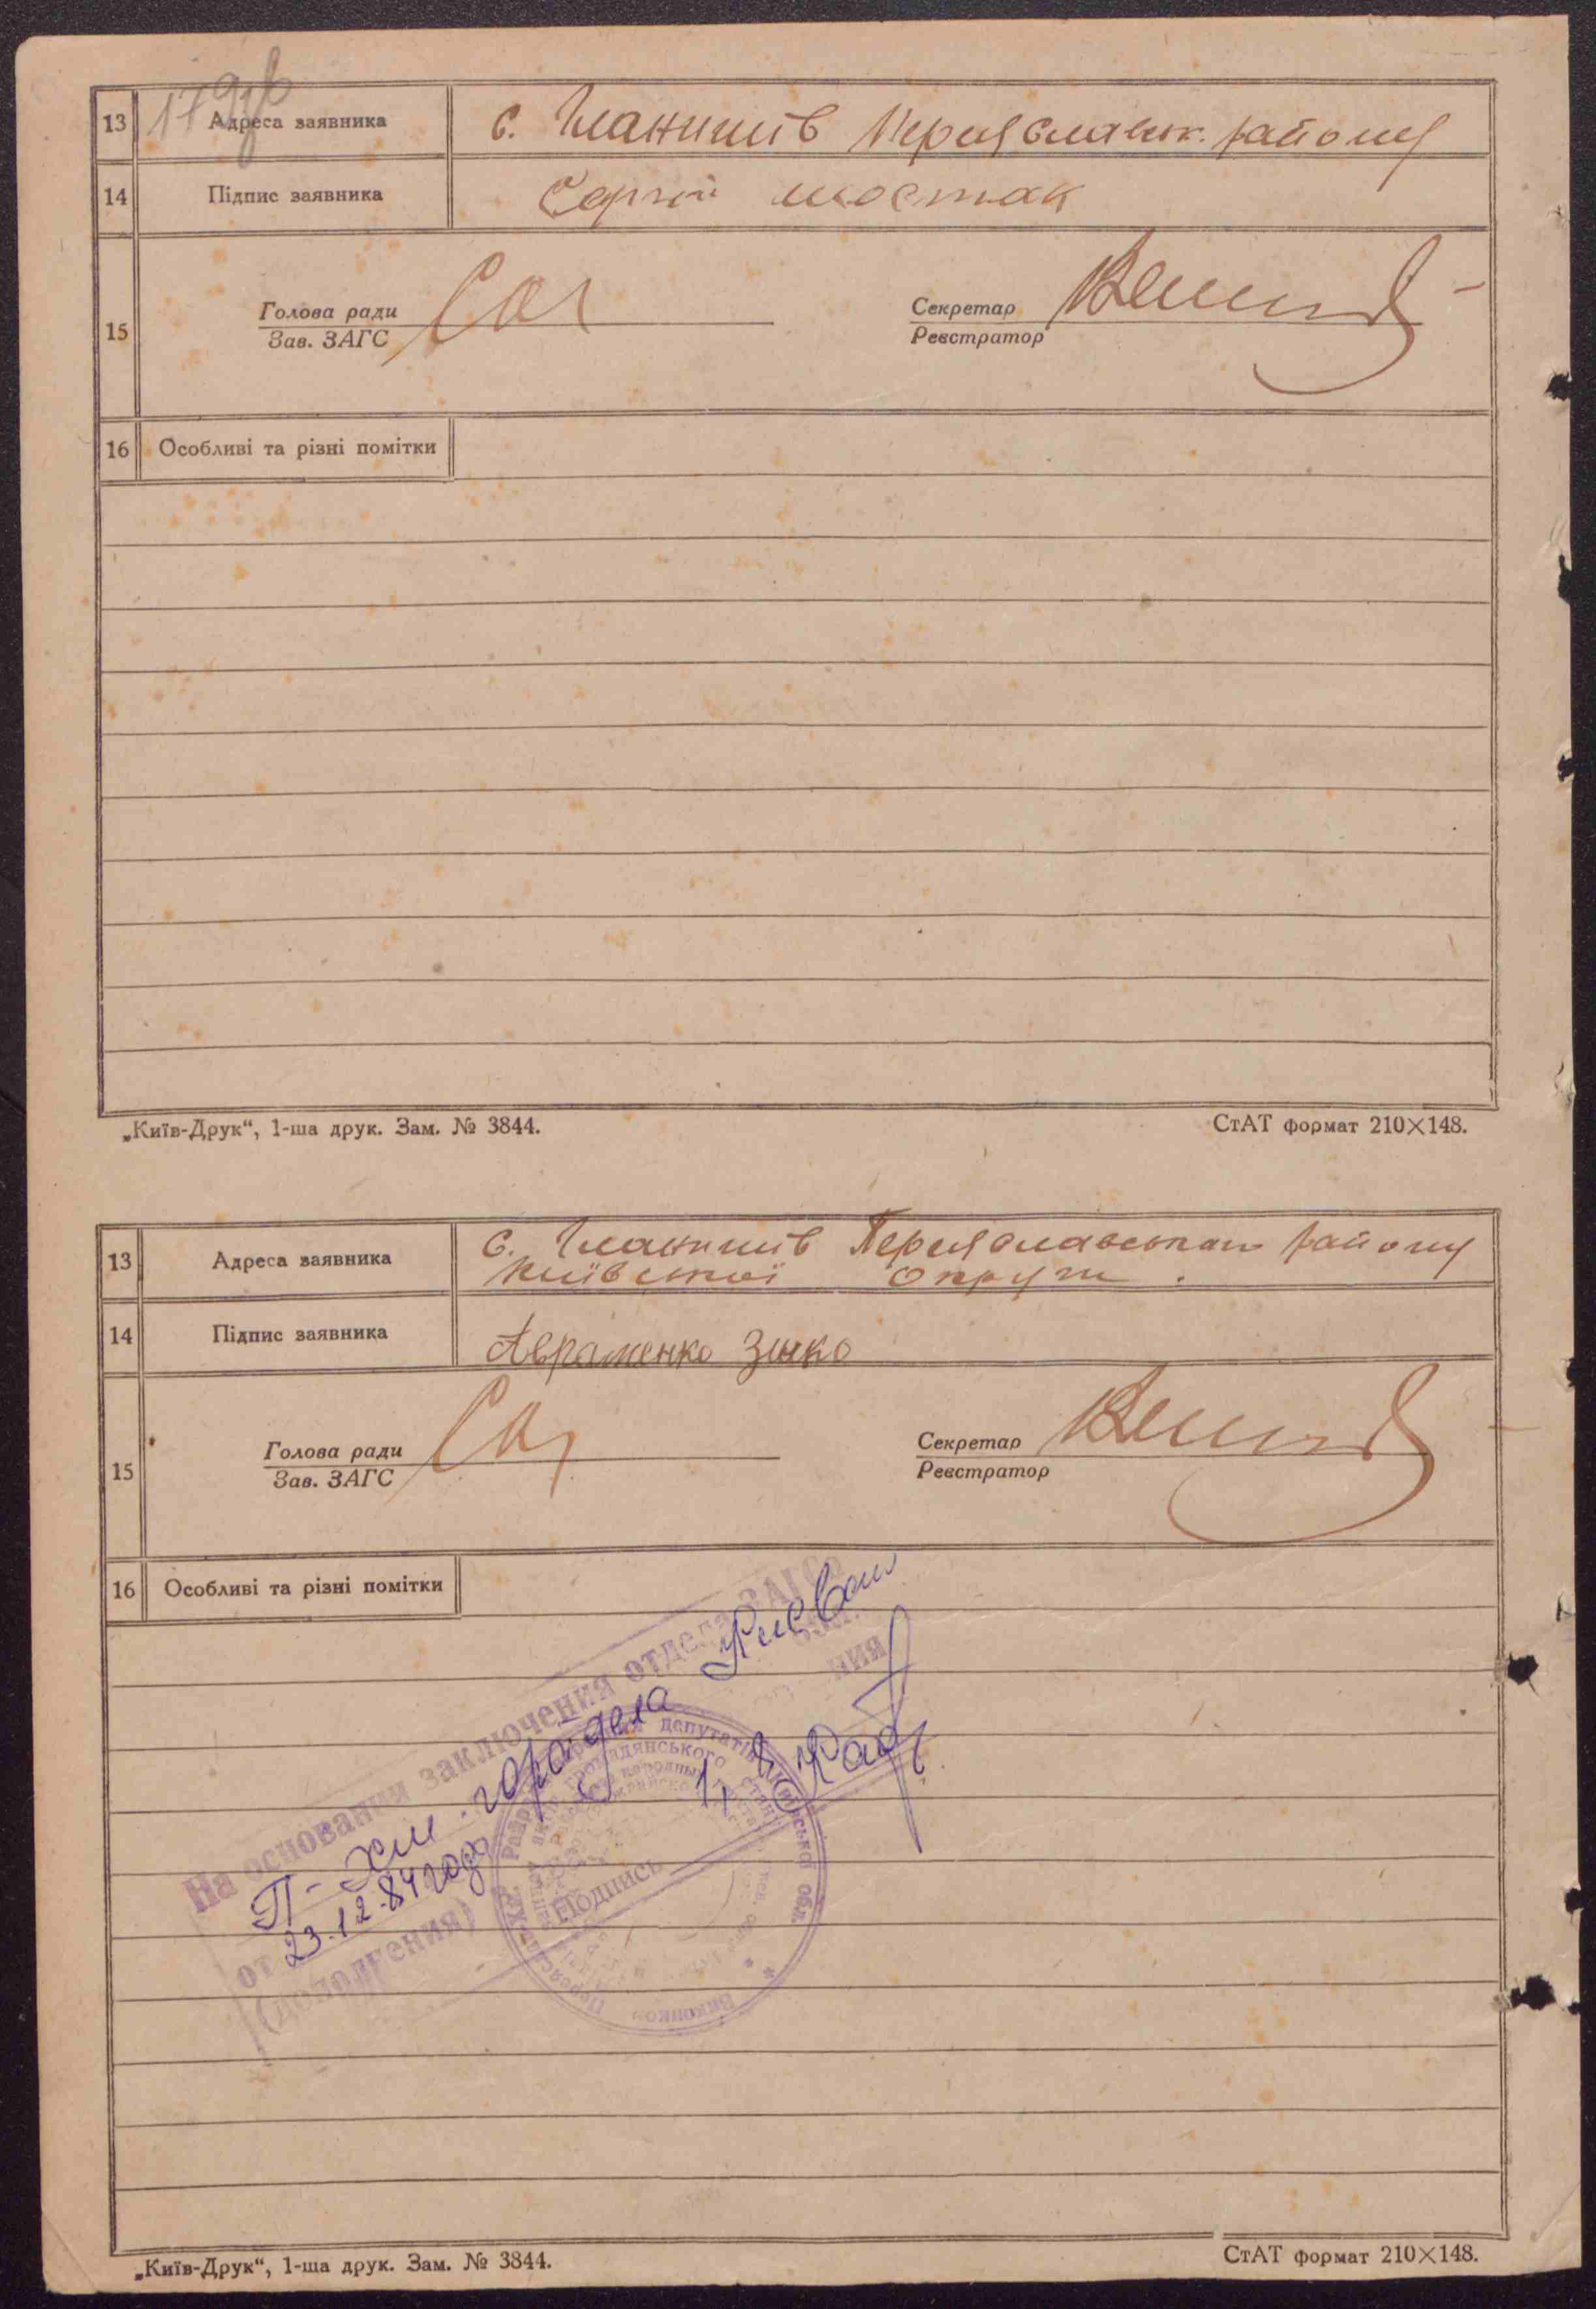 179зв
13 Адреса заявника с. Гланишів Переяславськ. району
14 Підпис заявника Сергій шостак
15 Голова ради
Зав. ЗАГС
Секретар
Реєстратор
16 Особливі та різні помітки
„Київ-Друк“, 1-ша друк. Зам. № 3844. СтАТ формат 210×148.
13 Адреса заявника с. Гланишів Переяславськаго району
Київської Округи.
14 Підпис заявника Авраменко Зінко
15 Голова ради
Зав. ЗАГС
Секретар
Реєстратор
16 Особливі та різні помітки
На основании заключения отдела ЗАГС
П-Хм. горотдела Киевоблис
от 23.12.84 года
(дополнения)
Подпись
„Київ-Друк“, 1-ша друк. Зам. № 3844. СтАТ формат 210×148.